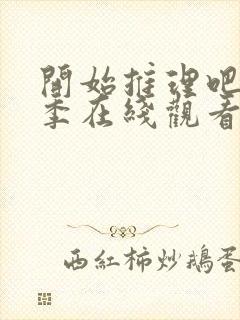 開始推理吧
季在綫觀看
西紅柿炒鵝蛋